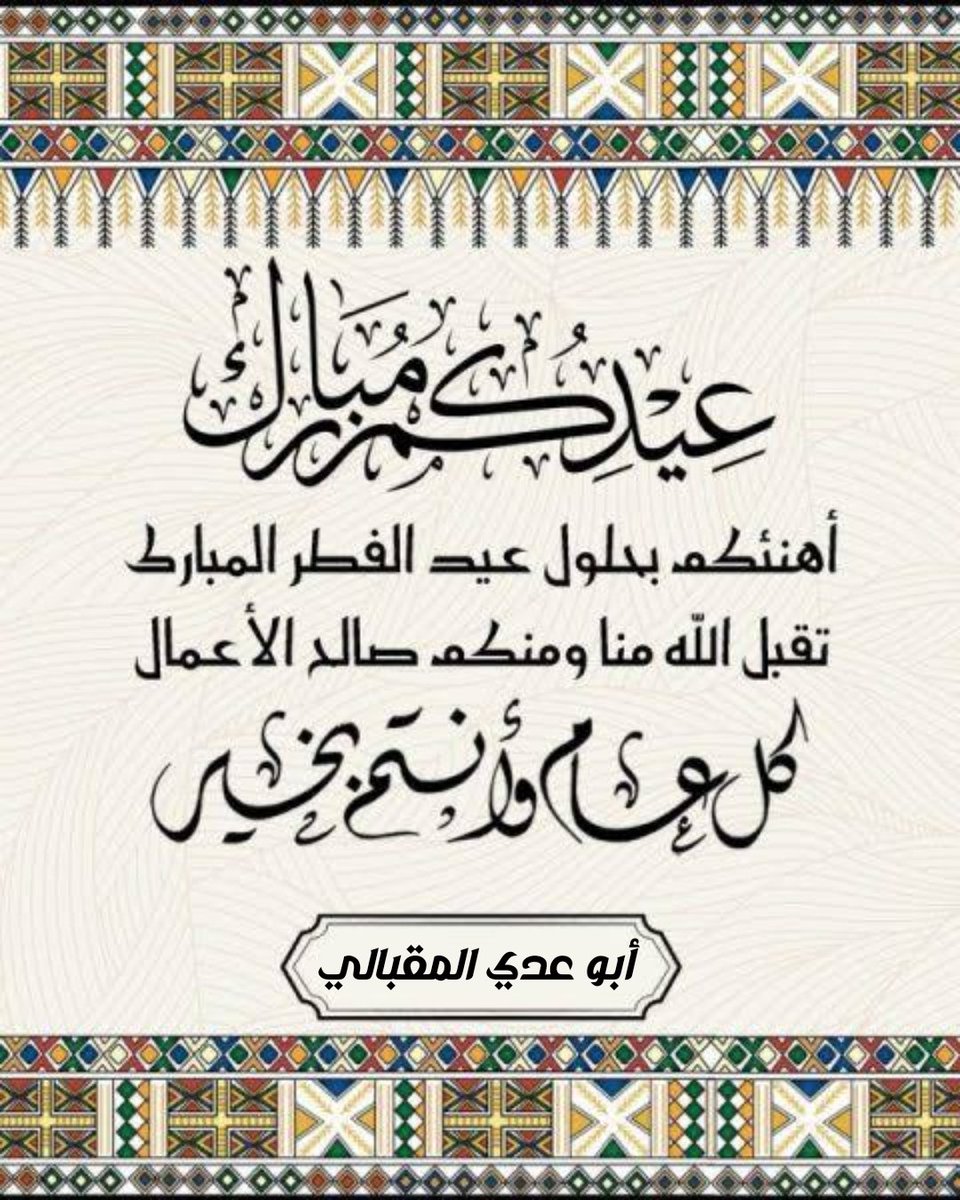 عِيْدِكُم مُبَارَك
أهنئكم بحلول عيد الفطر المبارك
تقبل الله منا ومنكم صالح الأعمال
كل عام وأنتم بخير
أبو عدي المقبالي